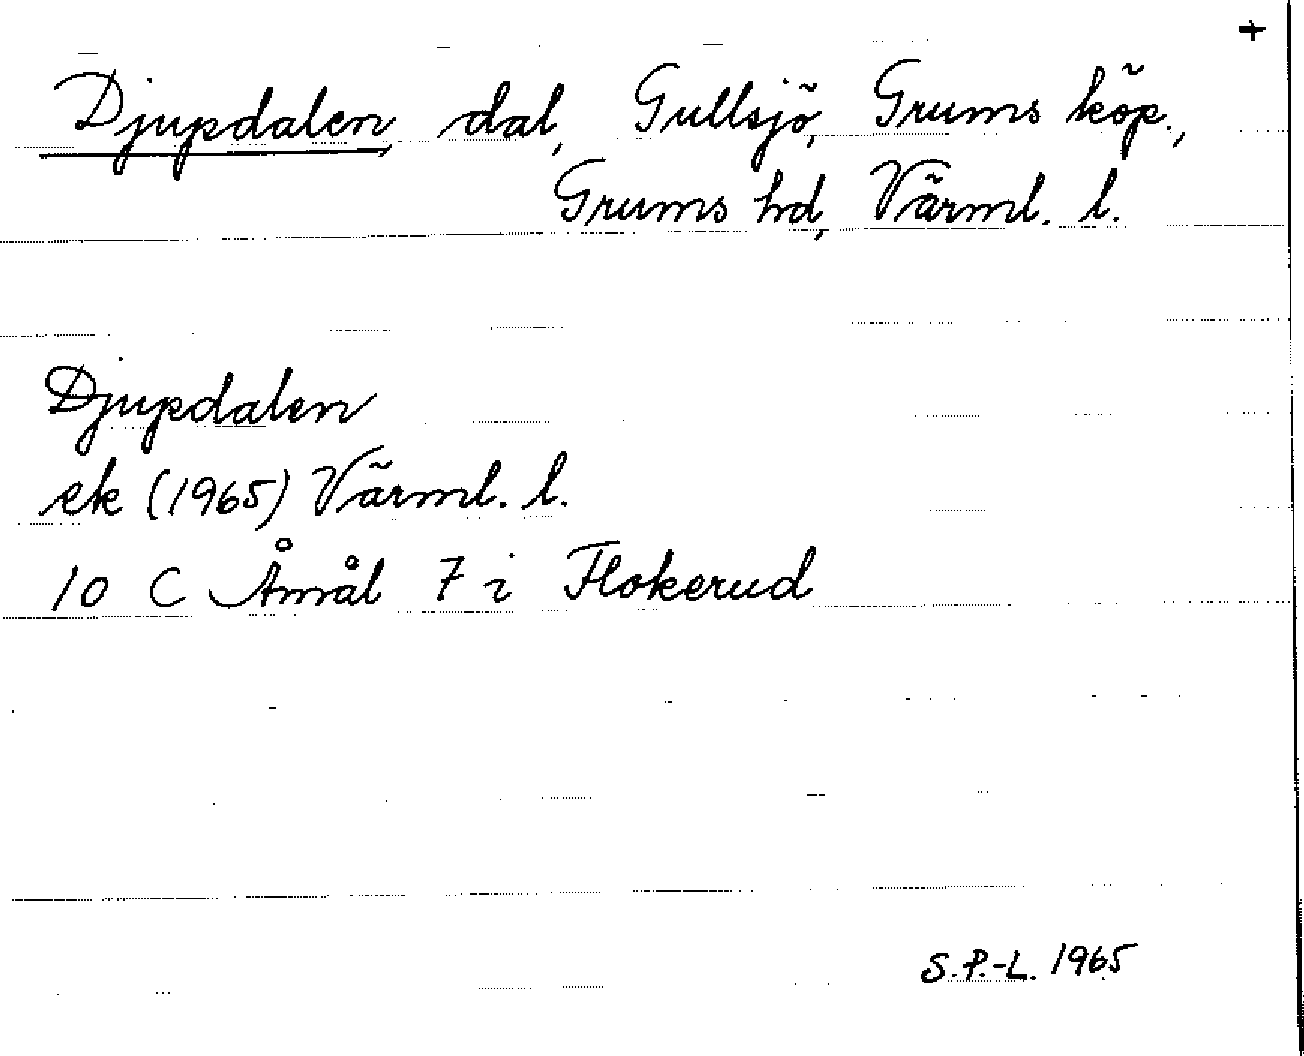 +
Djupdalen, dal, Gullsjö, Grums köp.,
Grums hd, Värml. l.
Djupdalen
ek (1965) Värml. l.
10 C Åmål 7 i Flokerud
S.P.-L. 1965